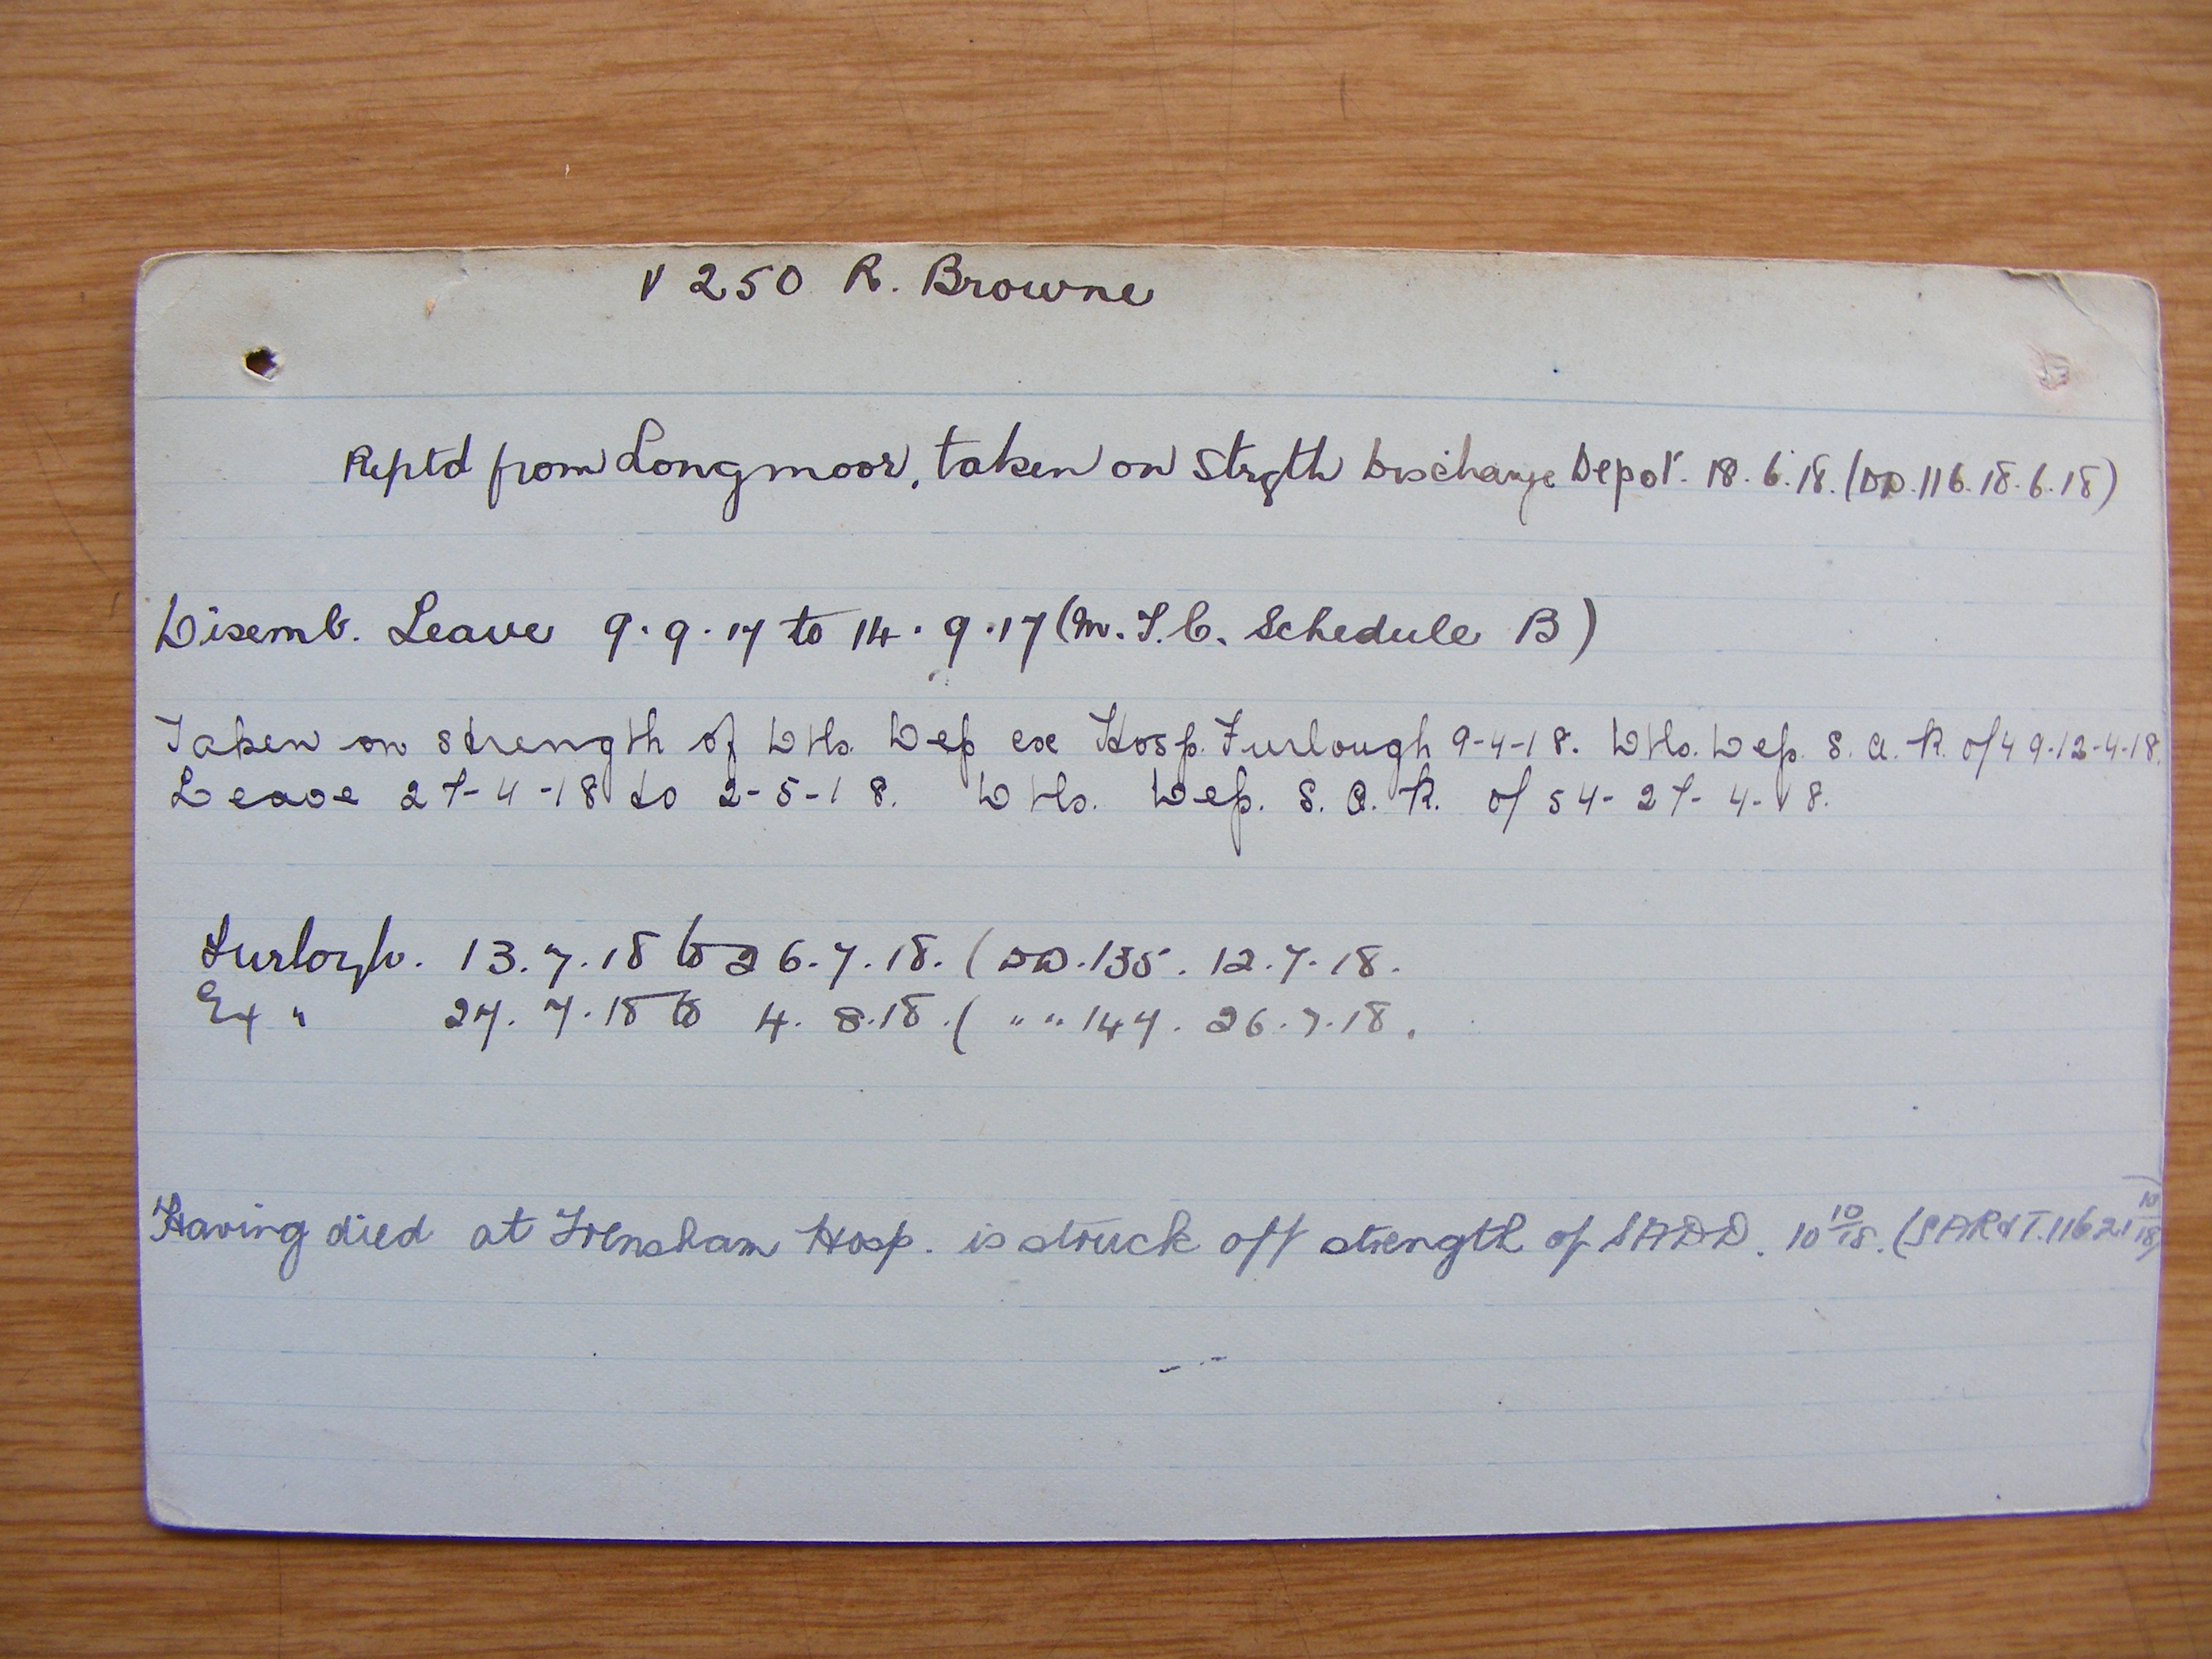 V 250 R. Browne
Reptd from Longmoor, taken on Strgth Discharge Depot. 18.6.18. (DD.116.18.6.18)
Disemb. Leave 9.9.17 to 14.9.17 (M.T.C. Schedule B)
Taken on strength of Dtls. Dep ex Hosp. Furlough 9-4-18. Dtls. Dep. S.A.R. of 49.12-4-18.
Leave 27-4-18 to 2-5-18. Dtls. Dep. S.A.R. of 54-27-4-18.
Furlogh. 13.7.18 to 26.7.18. (DD.135. 12.7.18.
Ex " 27.7.18 to 4.8.18. ( " " 147. 26.7.18.
Having died at Frensham Hosp. is struck off strength of SADD. 10 10/18. (SAR